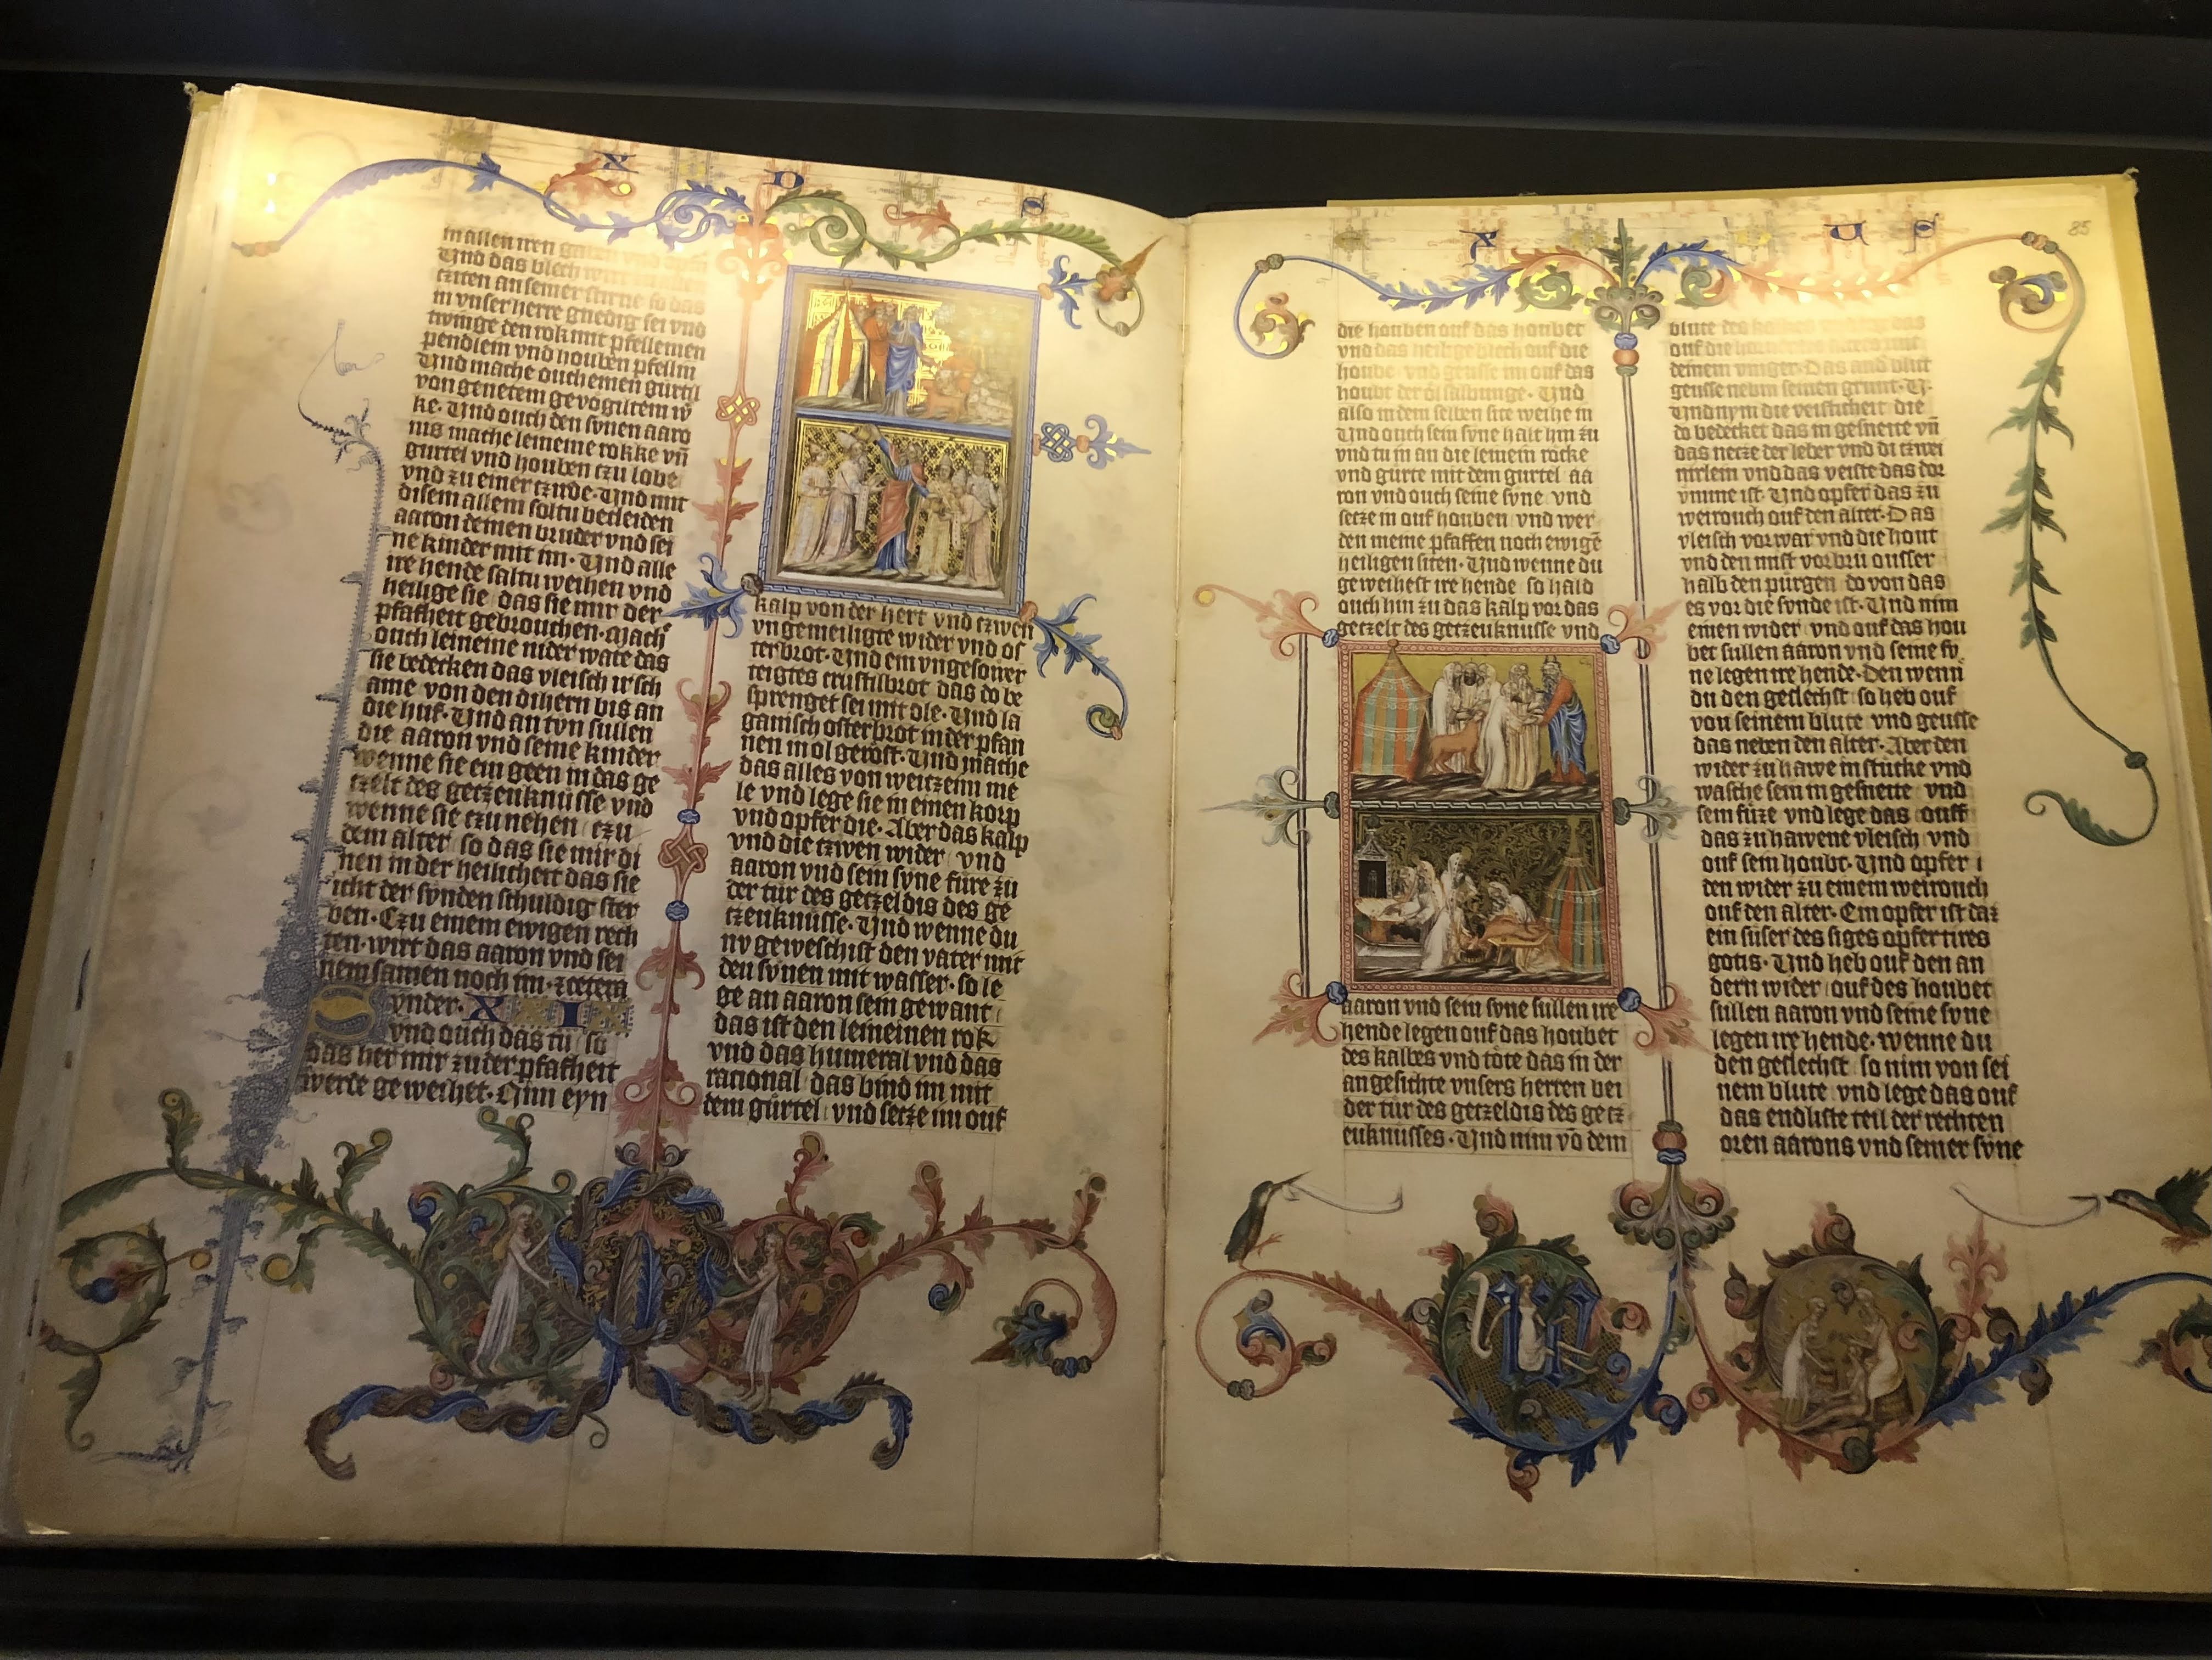 X O D
in allen iren gaben und
Und das blech
tziten an seiner stirne so das
in vnser herre gnedig sei vnd
twinge den rok mit pfellemen
pendlem vnd houben pfellin
Und mache ouch einen gurtil
von genetem gevogiltem w̄
ke · Und ouch den synen aaro
nis mache leineine rokke vn̄
gurtel vnd houben tzu lobe
vnd zu einer tzirde · Und mit
disem allem soltu becleiden
aaron deinen bruder vnd sei
ne kinder mit im · Und alle
ire hende saltu weihen vnd
heilige sie das sie mir der
pfafheit gebrouchen · Mach
ouch leineine nider wate das
sie bedecken das vleisch irsch
ame von den dihern bis an
die huf · Und an tvn sullen
die aaron vnd seine kinder
wenne sie ein geen in das ge
tzelt des getzeuknusse vnd
wenne sie tzu nehen tzu
dem alter so das sie mir di
nen in der heilicheit das sie
icht der synden schuldig ster
ben · Czu einem ewigen rech
ten · wirt das aaron vnd sei
nem samen noch im · zcerem
ynder · XXIX
vnd ouch das tu so
das her mir zu der pfafheit
werde geweihet · Nim eyn
kalp von der hert vnd tzwen
vngemeiligte wider vnd os
terbrot · Und ein vngesouer
teigtes crustilbrot das do be
sprenget sei mit ole · Und la
ganisch osterbrot in der pfan
nen in ol gerost · Und mache
das alles von weitzeim me
le vnd lege sie in einen korp
vnd opfer die · Aber das kalp
vnd die tzwen wider vnd
aaron vnd sein syne fure zu
der tur des getzeldis des ge
tzeuknusse · Und wenne du
nv geweschist den vater mit
den synen mit wasser · so le
ge an aaron sein gewant
das ist den leineinen rok
vnd das humeral vnd das
racional das bind im mit
dem gurtel vnd setze im ouf
X U S
85
die houben ouf das houbet
vnd das heilige blech ouf die
hoube vnd geusse im ouf das
houbt der ol salbunge · Und
also in dem selben site weihe in
Und ouch sein syne halt hin zu
vnd tu in an die leinein rocke
vnd gurte mit dem gurtel aa
ron vnd ouch seine syne vnd
setze in ouf houben vnd wer
den meine pfaffen noch ewige
heiligen siten · Und wenne du
geweihest ire hende so hald
ouch hin zu das kalp vor das
getzelt des getzeuknusse vnd
aaron vnd sein syne sullen ire
hende legen ouf das houbet
des kalbes vnd tote das in der
angesichte vnsers herren bei
der tur des getzeldis des getz
euknusses · Und nim vō dem
blute des kalbes
ouf die
deinem vinger · Das and blut
geusse nebin seinen grunt · V̄·
Und nym die veisticheit die
do bedecket das in gesneite vn̄
das netze der leber vnd di tzwei
nirlein vnd das veiste das dor
vmme ist · Und opfer das zu
weirouch ouf den alter · Das
vleisch vorwar vnd die hout
vnd den mist vorbrū ousser
halb den purgen do von das
es vor die synde ist · Und nim
einen wider vnd ouf das hou
bet sullen aaron vnd seine sy
ne legen ire hende · Den wenn
du den geslechst so heb ouf
von seinem blute vnd geusse
das neben den alter · Aber den
wider zu hawe in stucke vnd
wasche sein in gesneite vnd
sein fuze vnd lege das ouff
das zu hawene vleisch vnd
ouf sein houbt · Und opfer i
den wider zu einem weirouch
ouf den alter · Ein opfer ist daz
ein suser des siges opfer ires
gotis · Und heb ouf den an
dern wider ouf des houbet
sullen aaron vnd seine syne
legen ire hende · wenne du
den geslechst so nim von sei
nem blute vnd lege das ouf
das endliste teil der rechten
oren aarons vnd seiner syne